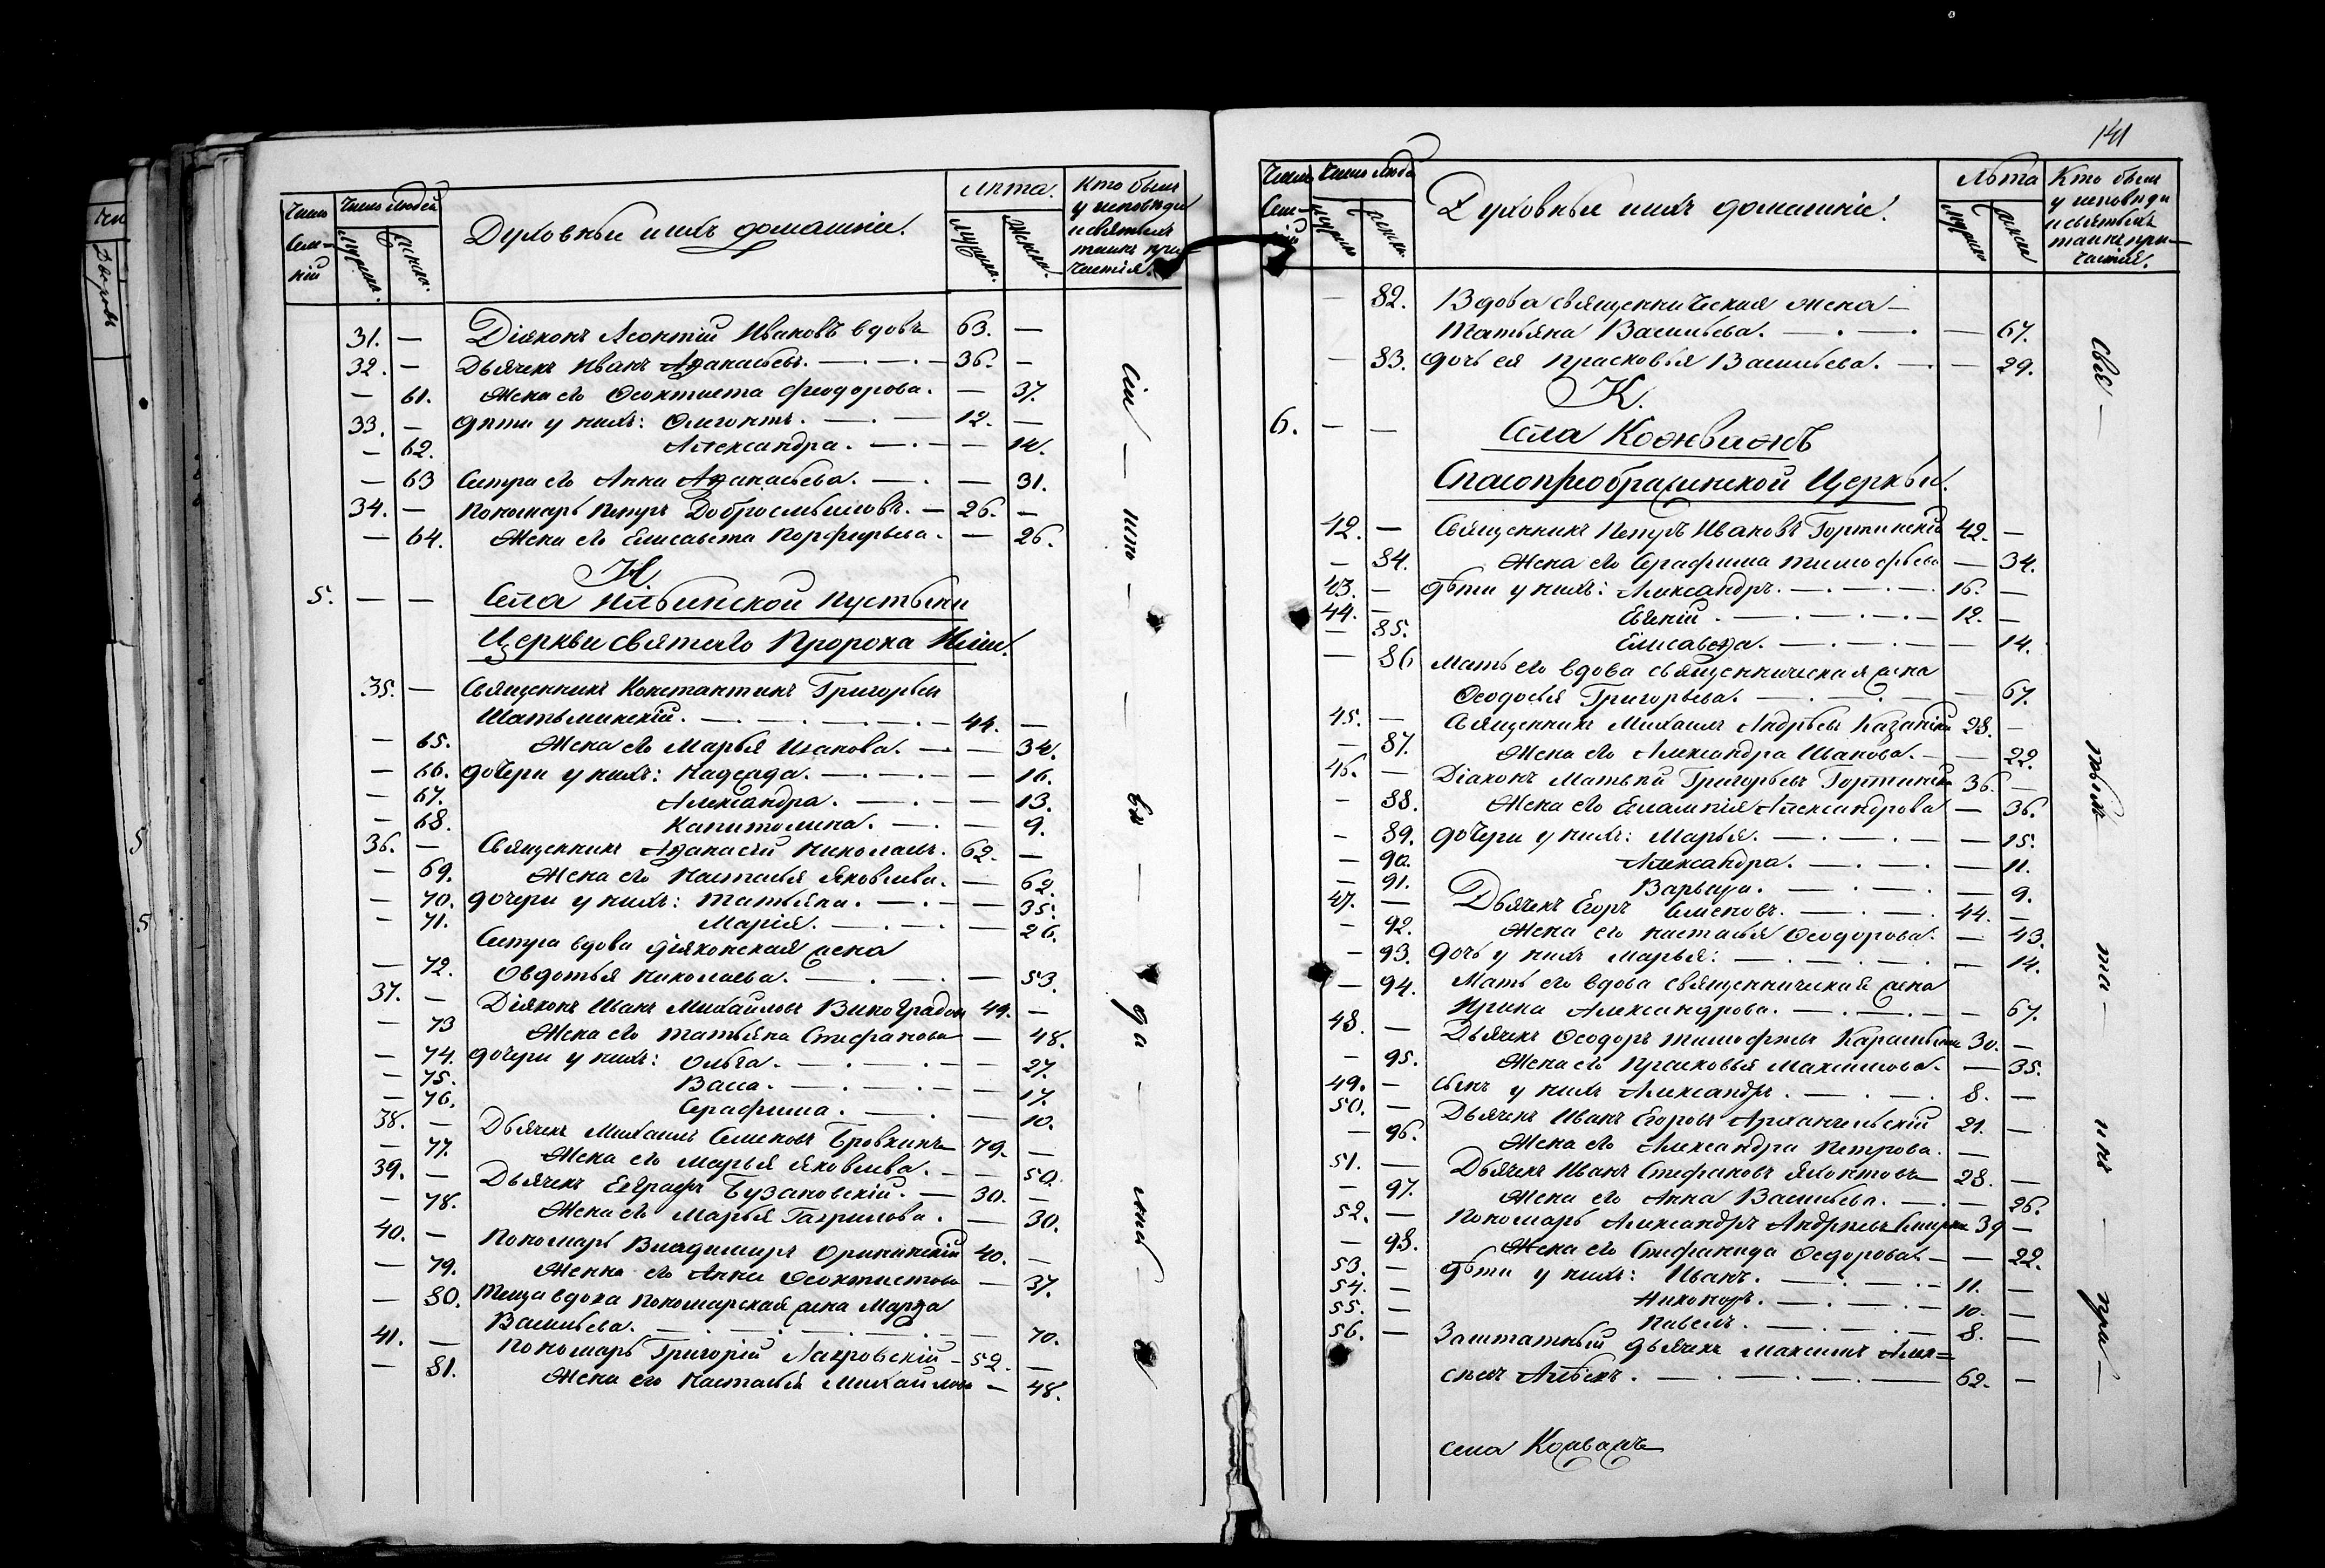 Число
Семей
Число людей
мужска.
женска.
Духовные и ихъ домашніе.
Лѣта.
мужска.
женска.
Кто былъ
у исповѣди
и святыхъ
таинъ при
частія.
31. — Діяконъ Леонтій Ивановъ вдовъ 63. —
32. — Дьячекъ Иванъ Аѳанасьевъ. — 36. —
— 61. Жена его Ѳеоктиста Феодорова. — 37.
33. — дѣти у нихъ: 12. —
— 62. Александра. — 14.
— 63 Сестра его Анна Аѳанасьева. — 31.
34. — Пономарь Петръ Добросмысловъ. — 26. —
— 64. Жена его Елисавета Порфирьева. — 26.
И.
5. — — Села Ильинской пустыни
Церкви святаго Пророка Иліи.
35. — Священникъ Константинъ Григорьевъ
Шатьминскій. — 44. —
— 65. Жена его Марья Иванова. — 34.
— 66. дочери у нихъ: Надежда. — 16.
— 67. Александра. — 13.
— 68. Капитолина. — 9.
36. — Священникъ Аѳанасій Николаевъ. 62. —
— 69. Жена его Настасья Яковлева. — 62.
— 70. дочери у нихъ: Татьяна. — 35.
— 71. Марія. — 26.
Сестра вдова діяконская жена
— 72. Овдотья Николаева. — 53.
37. — Діяконъ Иванъ Михайловъ Виноградовъ 49. —
— 73 Жена его Татьяна Стефанова — 48.
— 74. дочери у нихъ: Ольга. — 27.
— 75. Васса. — 17.
— 76. Серафима. — 10.
38. — Дьячекъ Михаилъ Семеновъ Бровкинъ 79. —
— 77. Жена его Марья Яковлева. — 50.
39. — Дьячекъ Евграфъ Бузановскій. — 30. —
— 78. Жена его Марья Гаврилова. — 30.
40. — Пономарь Владимиръ Орининскій 40. —
— 79. Женна его Анна Ѳеоктистова — 37.
— 80. Теща вдова пономарская жена Марѳа
Васильева. — 70.
41. — Пономарь Григорій Лавровскій — 52. —
— 81. Жена его Настасья Михайлова — 48.
сіи — — во — да —
141
Число
Семей
Число люде
мужска
женска.
Духовные и ихъ домашніе.
Лѣта
мужска
женска
Кто былъ
у исповѣди
и святыхъ
таинъ при-
частія.
— 82. Вдова священническая жена —
Татьяна Васильева. — 67.
— 83. дочь ея Прасковья Васильева. — 29.
К.
6. — — Села Кожважъ
Спасопреображенской Церкви.
42. — Священникъ Петръ Ивановъ Гортинскій 42. —
— 84. Жена его Серафима Тимофѣева — 34.
43. — дѣти у нихъ: Александръ. — 16. —
44. — Евгеній. — 12. —
— 85. Елисавета. — 14.
— 86 Мать его вдова священническая жена
Ѳеодосья Григорьева. — 67.
45. — Священникъ Михаилъ Андрѣевъ Казанскій 28. —
— 87. Жена его Александра Иванова. — 22.
46. — Діаконъ Матвѣй Григорьевъ Гортинскій 36. —
— 88. Жена его Евлампія Александрова — 36.
— 89. дочери у нихъ: Марья. — 15.
— 90. Александра. — 11.
— 91. Варвара. — 9.
47. — Дьячекъ Егоръ Семеновъ. — 44. —
— 92. Жена его Настасья Ѳеодорова. — 43.
— 93. дочь у нихъ Марья: — 14.
— 94. Мать его вдова священническая жена
Ирина Александрова. — 67.
48. — Дьячекъ Ѳеодоръ Тимофѣевъ 30. —
— 95. Жена его Прасковья Максимова. — 35.
49. — сынъ у нихъ Александръ. — 8. —
50. — Дьячекъ Иванъ Егоровъ Архангельскій 21. —
— 96. Жена его Александра Петрова. —
51. — Дьячекъ Иванъ Стефановъ Яхонтовъ 28. —
— 97. Жена его Анна Васильева. — 26.
52. — Пономарь Александръ Андрѣевъ 39 —
— 98. Жена его Стефанида Ѳедорова. — 22.
53. — дѣти у нихъ: Иванъ. — 11. —
54. — Никоноръ. — 10. —
55. — Павелъ. — 8. —
56. — Заштатный дьячекъ Максимъ Алек=
сѣевъ — 62. —
села Кожважъ
свя — — та — — при —